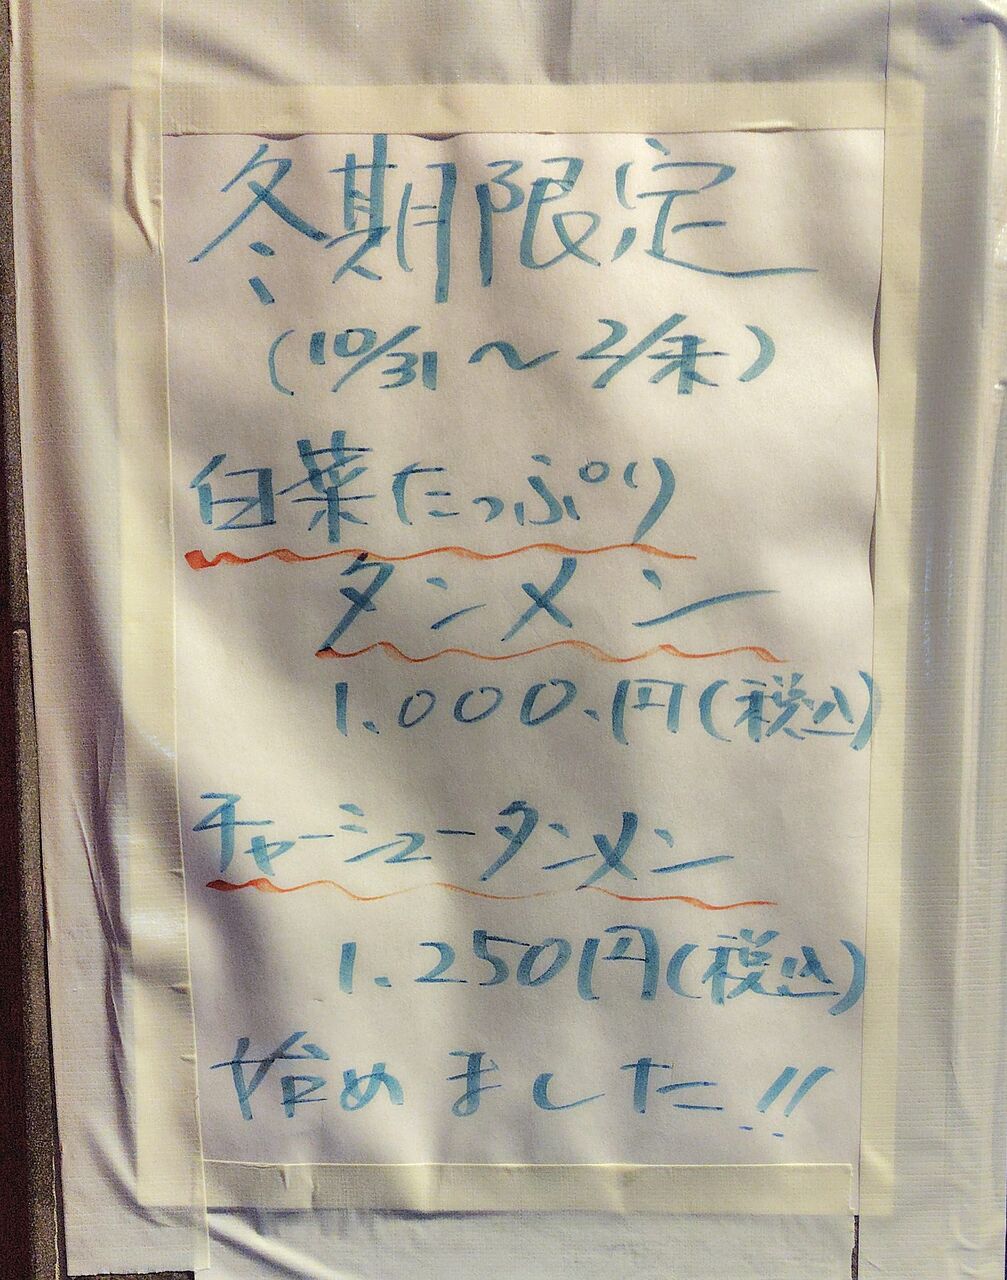 冬期限定
(10/31～2/末)
白菜たっぷり
タンメン
1.000.円(税込)
チャーシュータンメン
1.250円(税込)
始めました!!